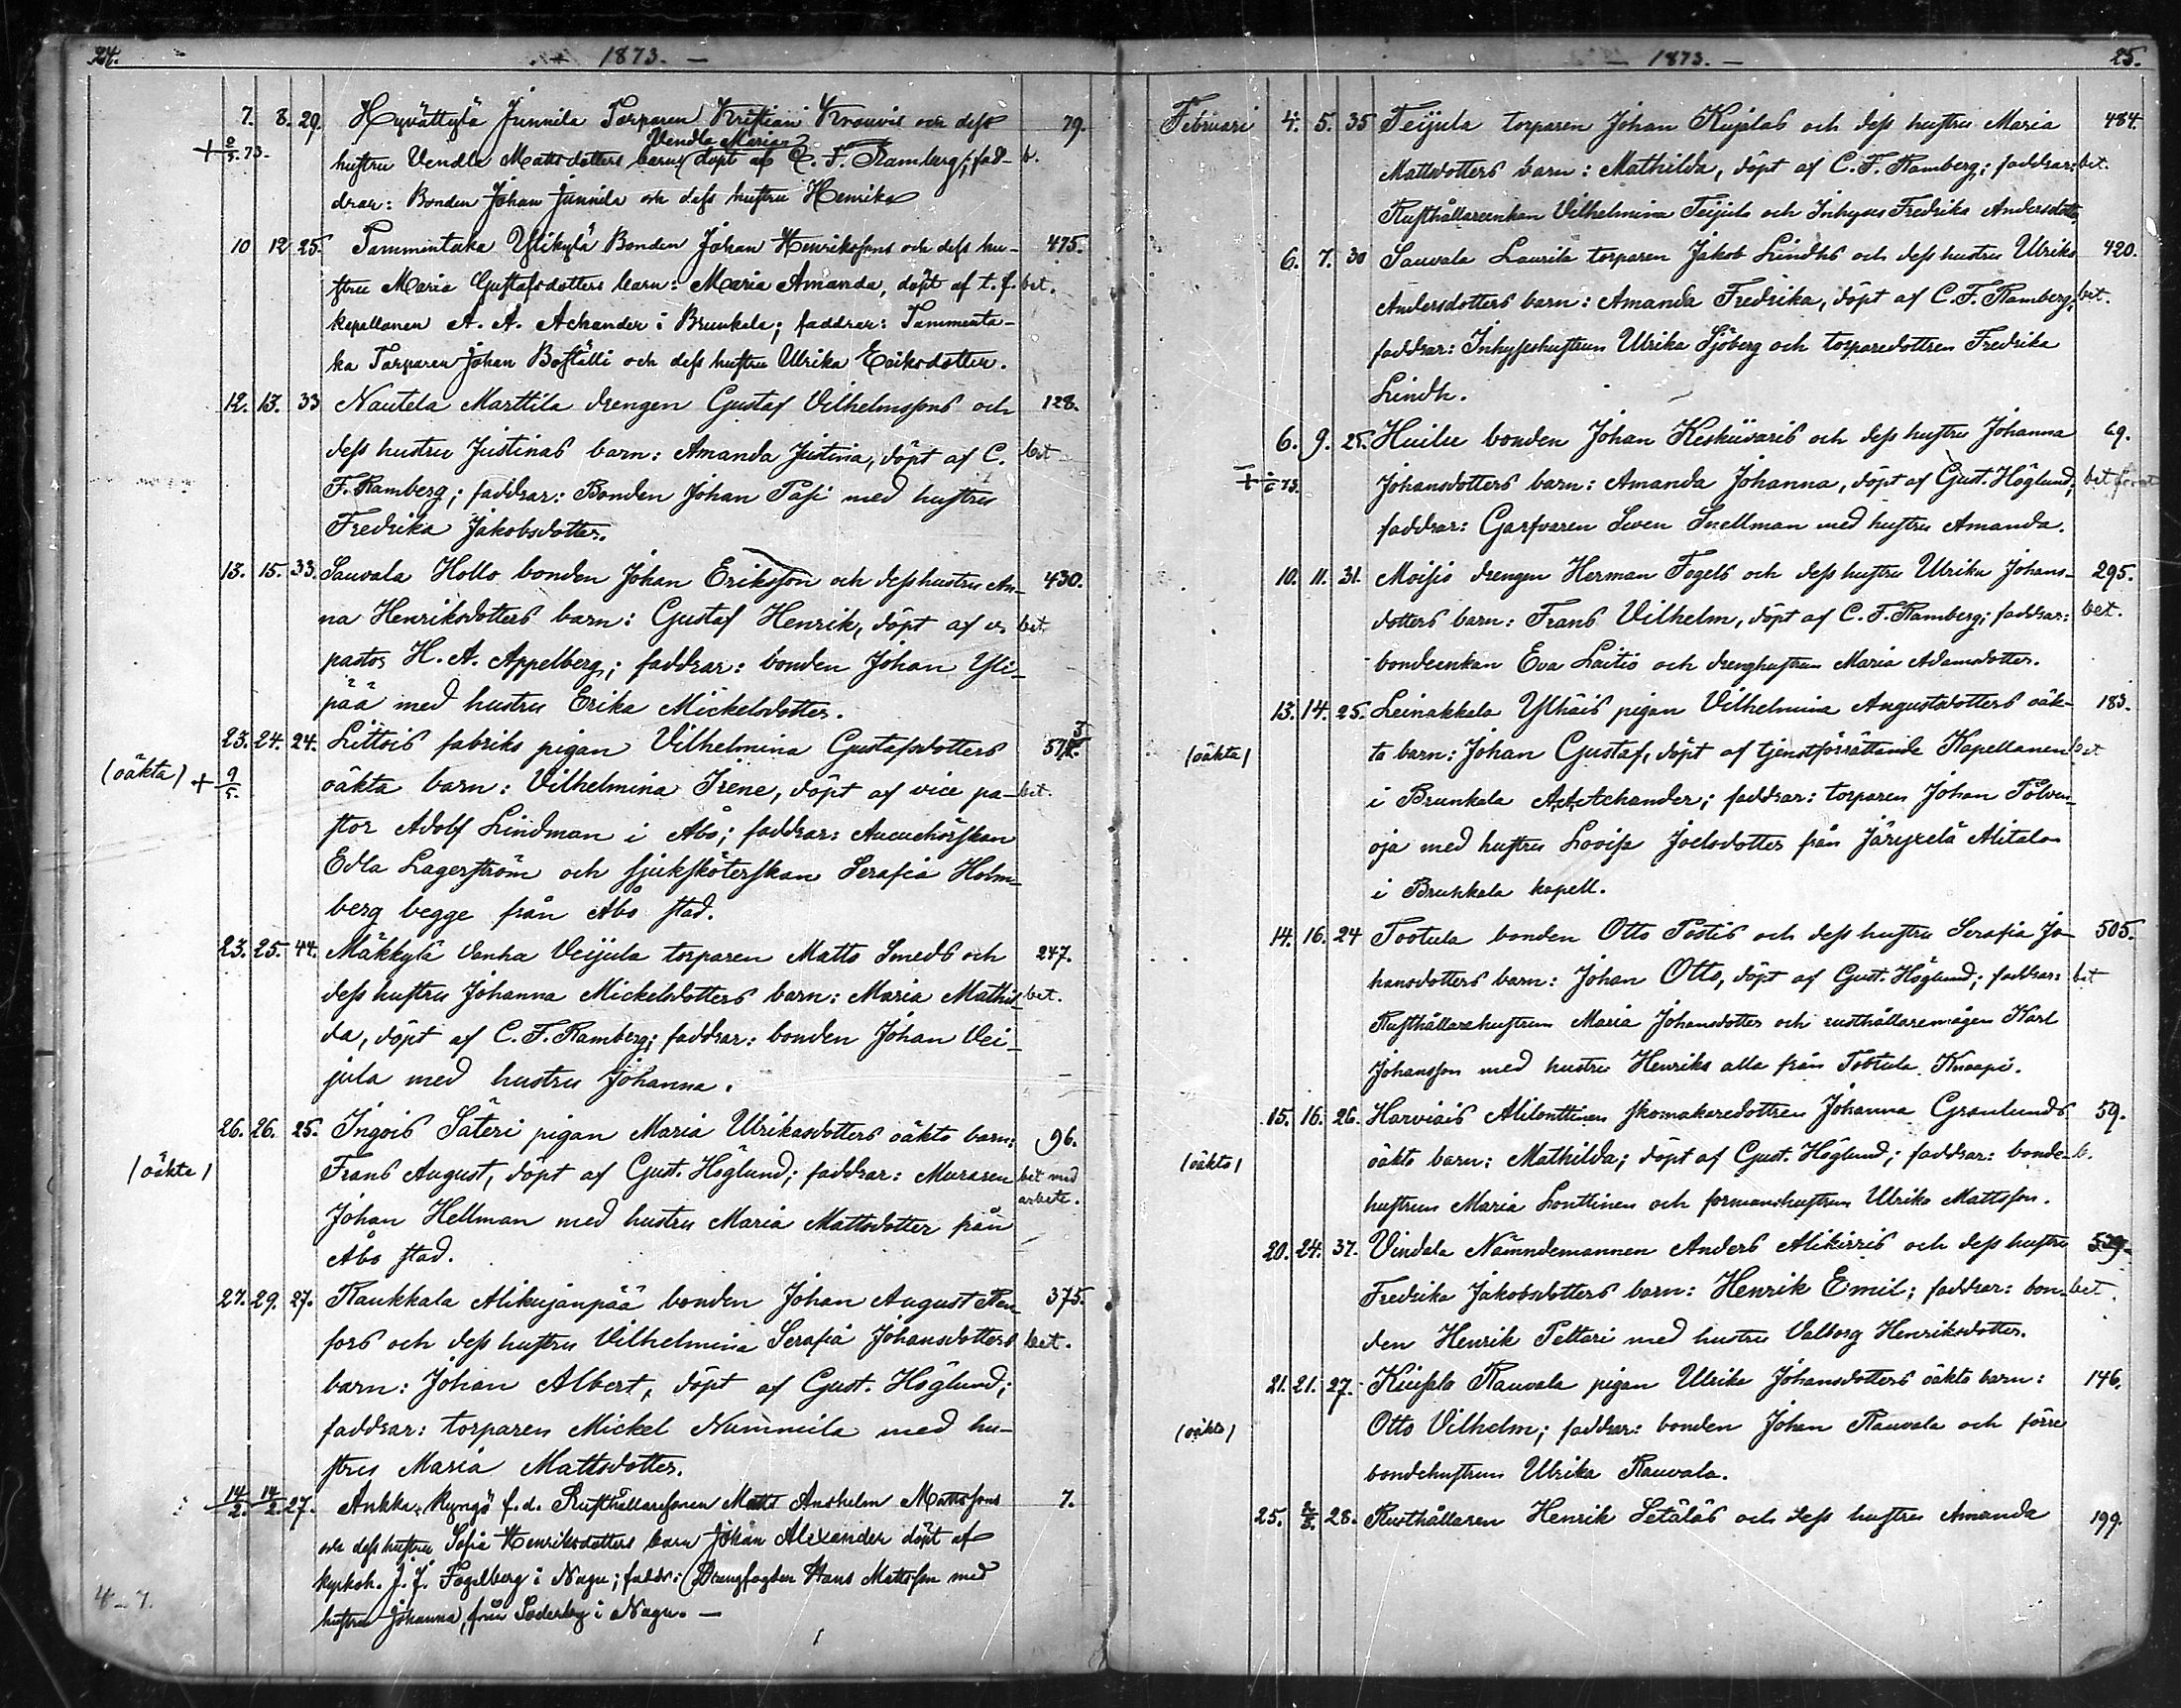 24. 1873. —
7. 8. 29. Hyvättylä Junnila Torparen Kristian Krouvis och dess 79.
Vendla Maria
hustru Vendla Mattsdotters barn döpt af C. F. Ramberg; fad- b.
drar: Bonden Johan Junnila och dess hustru Henrika
10 12 25. Tammentaka Ylikylä Bonden Johan Henrikssons och dess hu- 475.
stru Maria Gustafsdotters barn: Maria Amanda, döpt af t. f. bet.
kapellanen A. A. Achander i Brunkala; faddrar: Tammenta-
ka Torparen Johan Boställi och dess hustru Ulrika Eriksdotter.
12. 13. 33 Nautela Marttila drengen Gustaf Vilhelmssons och 128.
dess hustru Justinas barn: Amanda Justina, döpt af C. bet
F. Ramberg; faddrar: Bonden Johan Pasi med hustru
Fredrika Jakobsdotter.
13. 15. 33. Sauvala Hollo bonden Johan Eriksson och dess hustru An- 430.
na Henriksdotters barn: Gustaf Henrik, döpt af v. bet.
pastor H. A. Appelberg; faddrar: bonden Johan Yli-
pää med hustru Erika Mickelsdotter.
23. 24. 24. Littois fabriks pigan Vilhelmina Gustafsdotters
(oäkta) + 9/5. oäkta barn: Vilhelmina Irene, döpt af vice pa- bet.
stor Adolf Lindman i Åbo; faddrar:
Edla Lagerström och sjuksköterskan Serafia Holm-
berg begge från Åbo stad.
23. 25. 44. Mäkkylä Vanha Veijula torparen Matts Smeds och 247.
dess hustru Johanna Mickelsdotters barn: Maria Mathil- bet.
da, döpt af C. F. Ramberg; faddrar: bonden Johan Vei-
jula med hustru Johanna.
26. 26. 25. Ingois Säteri pigan Maria Ulrikasdotters oäkta barn: 96.
(oäkta) Frans August, döpt af Gust. Höglund; faddrar: Muraren bet med
arbete.
Johan Hellman med hustru Maria Mattsdotter från
Åbo stad.
27. 29. 27. Raukkala Alikujanpää bonden Johan August Ren- 375.
fors och dess hustru Vilhelmina Serafia Johansdotters bet.
barn: Johan Albert, döpt af Gust. Höglund;
faddrar: torparen Mickel Nummila med hu-
stru Maria Mattsdotter.
14/2. 14/2. 27. Ankka Kyngö f. d. Rusthållaresonen Matts Anshelm Mattssons 7.
och dess hustru Sofia Henriksdotters barn Johan Alexander döpt af
kyrkoh. J. J. Fogelberg i Nagu; faddr: Drengfogden Hans Mattsson med
hustru Johanna, från Söderby i Nagu. —
4-7.
— 1873. — 25.
Februari 4. 5. 35 Teijula torparen Johan Kujalas och dess hustru Maria 484.
Mattsdotters barn: Mathilda, döpt af C. F. Ramberg; faddrar: bet.
Rusthållareenkan Vilhelmina Teijula och Inhyses Fredrika Andersdotter
6. 7. 30 Sauvala Laurila torparen Jakob Lindhs och dess hustru Ulrika 420.
Andersdotters barn: Amanda Fredrika, döpt af C. F. Ramberg; bet.
faddrar: Inhyseshustrun Ulrika Sjöberg och torparedottren Fredrika
Lindh.
6. 9. 25. Huilu bonden Johan Keskiivaris och dess hustru Johanna 69.
Johansdotters barn: Amanda Johanna, döpt af Gust. Höglund; bet
faddrar: Garfvaren Sven Snellman med hustru Amanda.
10. 11. 31. Moisio drengen Herman Fogels och dess hustru Ulrika Johans- 295.
dotters barn: Frans Vilhelm, döpt af C. F. Ramberg; faddrar: bet.
bondeenkan Eva Laitio och drenghustrun Maria Adamsdotter.
13. 14. 25. Leinakkala Ylhäis pigan Vilhelmina Augustsdotters oäk- 183.
(oäkta) ta barn: Johan Gustaf, döpt af tjenstförrättande Kapellanen bet
i Brunkala A. A. Achander; faddrar: torparen Johan Tölvän-
oja med hustru Lovisa Joelsdotter från Järykselä Alitalo
i Brunkala kapell.
14. 16. 24 Tootula bonden Otto Postis och dess hustru Serafia Jo- 505.
hansdotters barn: Johan Otto, döpt af Gust. Höglund; faddrar: bet
Rusthållarehustrun Maria Johansdotter och rusthållaremågen Karl
Johansson med hustru Henrika alla från Tootula Knaapi.
15. 16. 26. Harviais Alilonttinen skomakaredottren Johanna Granlunds 59.
(oäkta) oäkta barn: Mathilda; döpt af Gust. Höglund; faddrar: bonde- b.
hustrun Maria Lonttinen och formanshustrun Ulrika Mattsson.
20. 24. 37. Vindala Nämndemannen Anders Alikirris och dess hustru 539.
Fredrika Jakobsdotters barn: Henrik Emil; faddrar: bon- bet.
den Henrik Peltari med hustru Valborg Henriksdotter.
21. 21. 27. Kuisala Rauvala pigan Ulrika Johansdotters oäkta barn: 146.
(oäkta) Otto Vilhelm; faddrar: bonden Johan Rauvala och förre
bondehustrun Ulrika Rauvala.
25. 2/3. 28. Rusthållaren Henrik Setäläs och dess hustru Amanda 199.